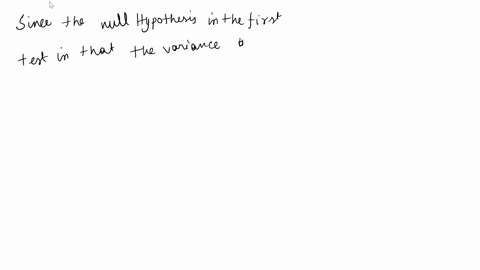 Since the null Hypothesis in the first
test in that the variance